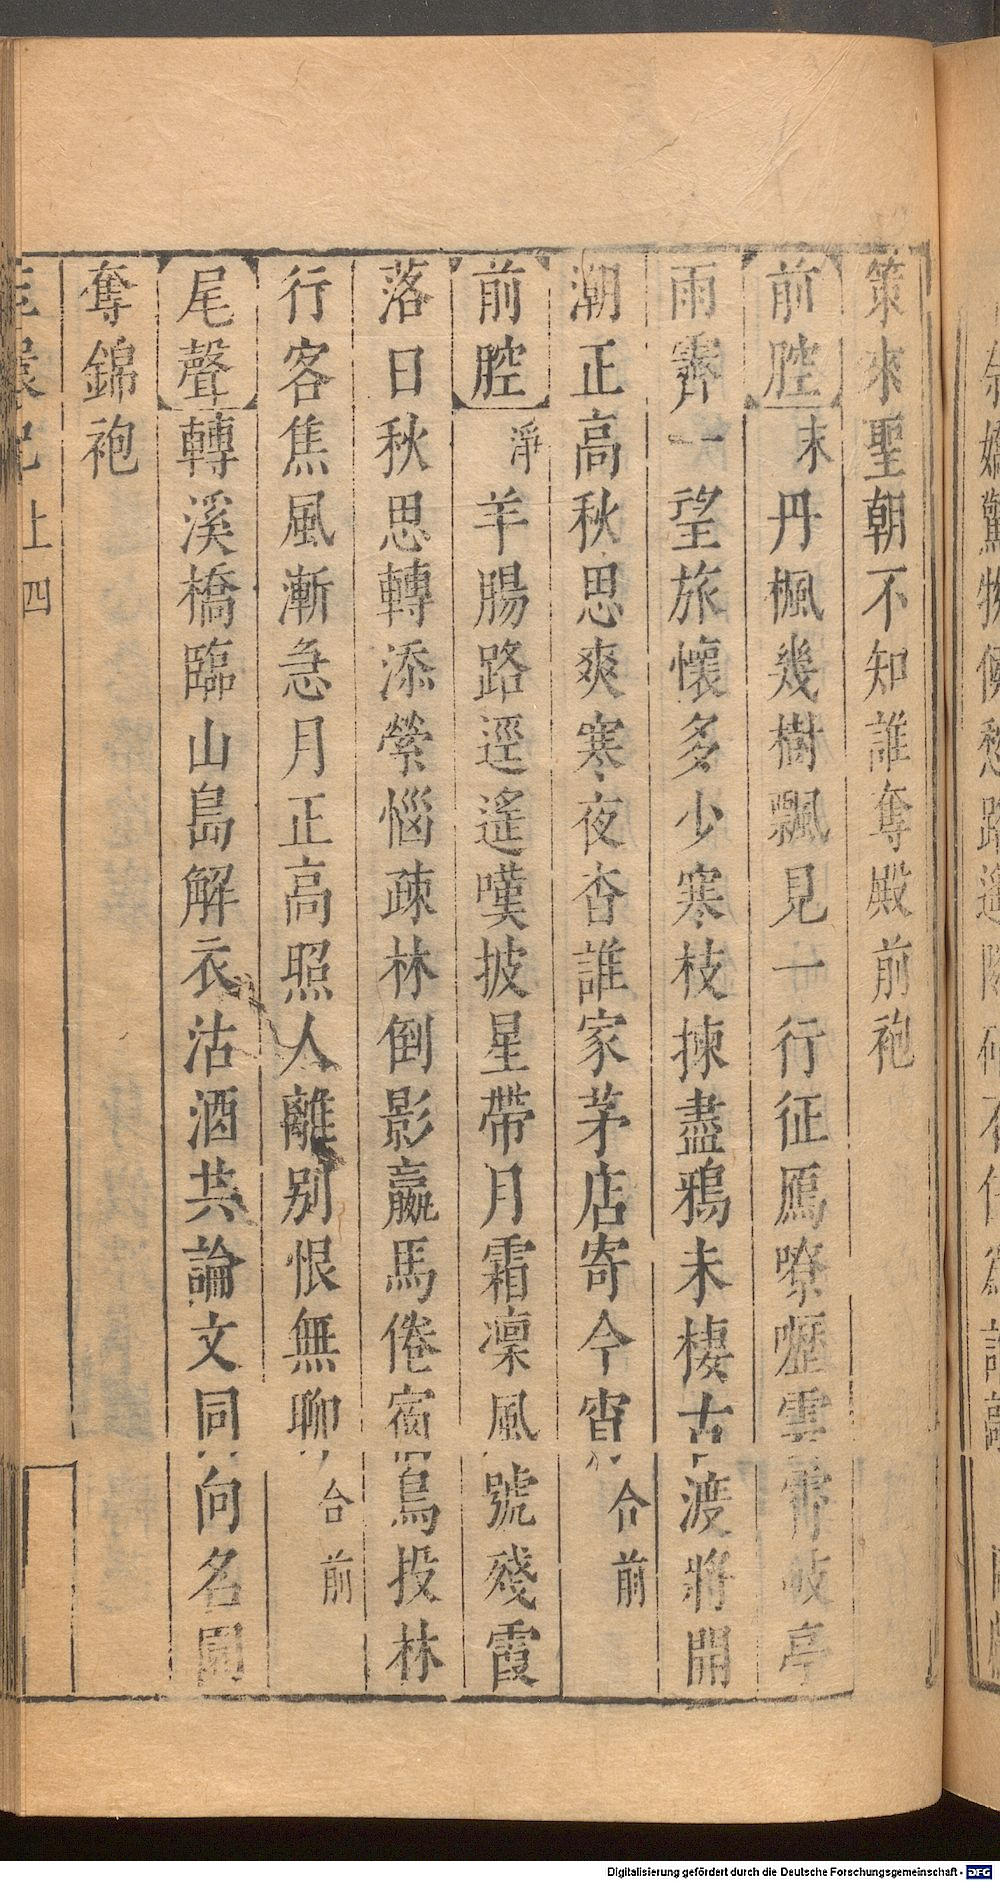 策來聖朝不知誰奪殿前袍
前腔末丹楓幾樹飄見一行征鴈嘹嚦雲霄歧亭
雨霽一望旅懷多少寒枝揀盡鴉未棲古渡將開
潮正高秋思爽寒夜杳誰家茅店寄今宵合前
前腔淨羊腸路逕遙嘆披星帶月霜凜風號殘霞
落日秋思轉添縈惱疎林倒影羸馬倦宿鳥投林
行客焦風漸急月正高照人離別恨無聊合前
尾聲轉溪橋臨山島解衣沽酒共論文同向名園
奪錦袍
記上 四
Digitalisierung gefördert durch die Deutsche Forschungsgemeinschaft - DFG